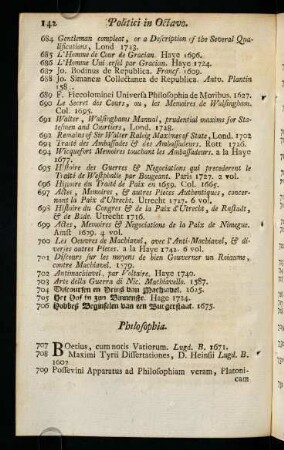 142 Politici in Octavo.
684 Gentleman compleat, or a Description of the Several Qua-
lifications, Lond 1723.
685 L'Homme de Cour de Gracian. Haye 1696.
686 L'Homme Universel par Gracian. Haye 1724.
687 Jo. Bodinus de Republica. Francf. 1609.
688 Jo. Simancæ Collectanea de Republica. Antv. Plantin
158
689 F. Piccolominei Universa Philosophia de Moribus. 1627.
690 Le Secret des Cours, ou, les Memoires de Walsingham.
Col. 1695.
691 Walter, Walsinghams Manual, prudential maxims for Sta-
tesmen and Courtiers, Lond. 1728.
692 Remains of Sir Walter Raleig Maximes of State, Lond. 1702
693 Traité des Ambassades & des Ambassadeurs. Rott. 1726.
694 Wicquefort Memoires touchant les Ambassadeurs. a la Haye
1677.
695 Histoire des Guerres & Negociations qui precederent le
Traité de Westphalie par Bougeant. Paris 1727. 2 vol.
696 Histoire du Traité de Paix en 1659. Col. 1665.
697 Actes, Memoires, & autres Pieces Authentiques, concer-
nant la Paix d'Utrecht. Utrecht 1727. 6 vol.
698 Histoire du Congres & de la Paix d'Utrecht, de Rastadt,
& de Bade. Utrecht 1716.
699 Actes, Memoires & Negociations de la Paix de Nimegue.
Amst. 1679. 4 vol.
700 Les Oeuvres de Machiavel, avec l'Anti-Machiavel, & di-
verses autres Pieces. a la Haye 1742. 6 vol.
701 Discours sur les moyens de bien Gouverner un Roiaume,
contre Machiavel. 1579.
702 Antimachiavel, par Voltaire. Haye 1740.
703 Arte della Guerra di Nic. Machiavelli. 1587.
704 Discoursen en Prins van Machiavel. 1625.
705 Het Hof in zyn Binnenste. Hage 1724.
706 Hobbes Beginselen van een Burgerstaat. 1675.
Philosophia.
707 Boetius, cum notis Variorum. Lugd. B. 1671.
708 Maximi Tyrii Dissertationes, D. Heinsii Lugd. B.
1607.
709 Possevini Apparatus ad Philosophiam veram, Platoni-
cam